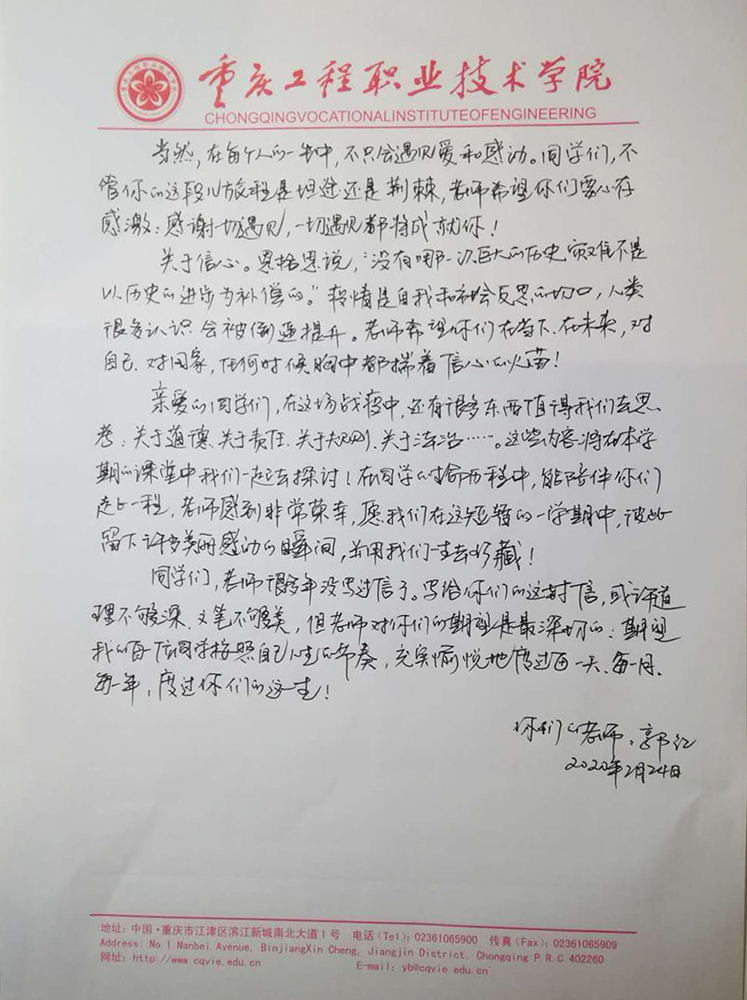 重庆工程职业技术学院
CHONGQINGVOCATIONALINSTITUTEOFENGINEERING
当然，在每个人的一生中，不只会遇见爱和感动。同学们，不
管你的这段心旅程是坦途还是荆棘，老师希望你们要心存
感激：感谢一切遇见，一切遇见都将成就你！
关于信心。恩格思说，“没有哪一次巨大的历史灾难不是
以历史的进步为补偿的。”疫情是自我和社会反思的切口，人类
很多认识会被倒逼提升。老师希望你们在当下、在未来，对
自己、对国家，任何时候胸中都揣着信心的火苗！
亲爱的同学们，在这场战疫中，还有很多东西值得我们去思
考：关于道德、关于责任、关于规则、关于法治……。这些内容将在本学
期的课堂中我们一起去探讨！在同学的生命历程中，能陪伴你们
走此一程，老师感到非常荣幸，愿我们在这短暂的一学期中，彼此
留下许多美丽感动的瞬间，并用我们一生去珍藏！
同学们，老师很多年没写过信了。写给你们的这封信，或许道
理不够深、文笔不够美，但老师对你们的期望是最深切的：期望
我的每位同学按照自己人生的节奏，充实愉悦地度过每一天、每一月、
每一年，度过你们的这一生！
你们的老师：郭红
2020年2月24日
地址：中国·重庆市江津区滨江新城南北大道1号 电话（Tel）：02361065900 传真（Fax）：02361065909
Address: No.1 Nanbei Avenue, BinjiangXin Cheng, Jiangjin District, Chongqing P.R.C 402260
网址：http://www.cqvie.edu.cn E-mail: yb@cqvie.edu.cn